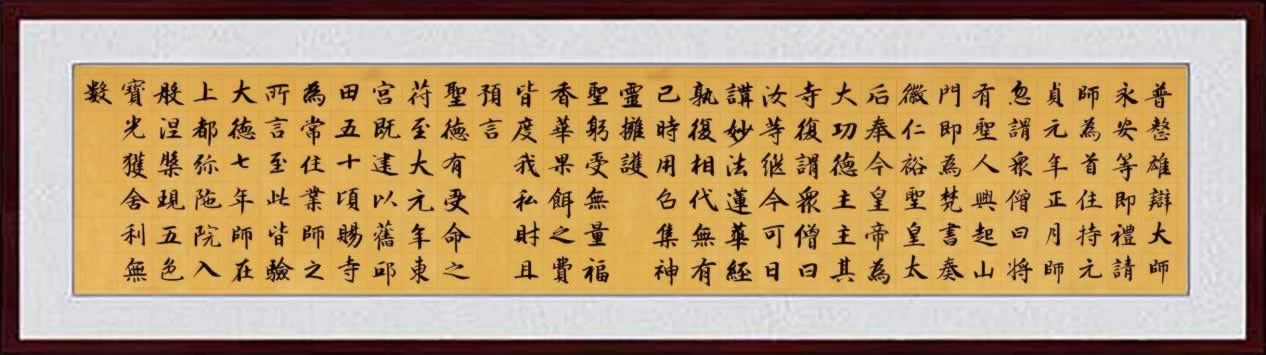 普整雄辯大師
永安等即禮請
師為首住持元
貞元年正月師
忽謂眾僧曰將
有聖人興起山
門即為梵書奏
徽仁裕聖皇太
后奉今皇帝為
大功德主主其
寺復謂眾僧曰
汝等繼今可日
講妙法蓮華經
孰復相代無有
已時用召集神
靈擁護
聖躬受無量福
香華果餌之費
皆度我私財且
預言
聖德有受命之
苻至大元年東
宮既建以舊邸
田五十頃賜寺
為常住業師之
所言至此皆驗
大德七年師在
上都弥陁院入
般涅槃現五色
寶光獲舍利無
数